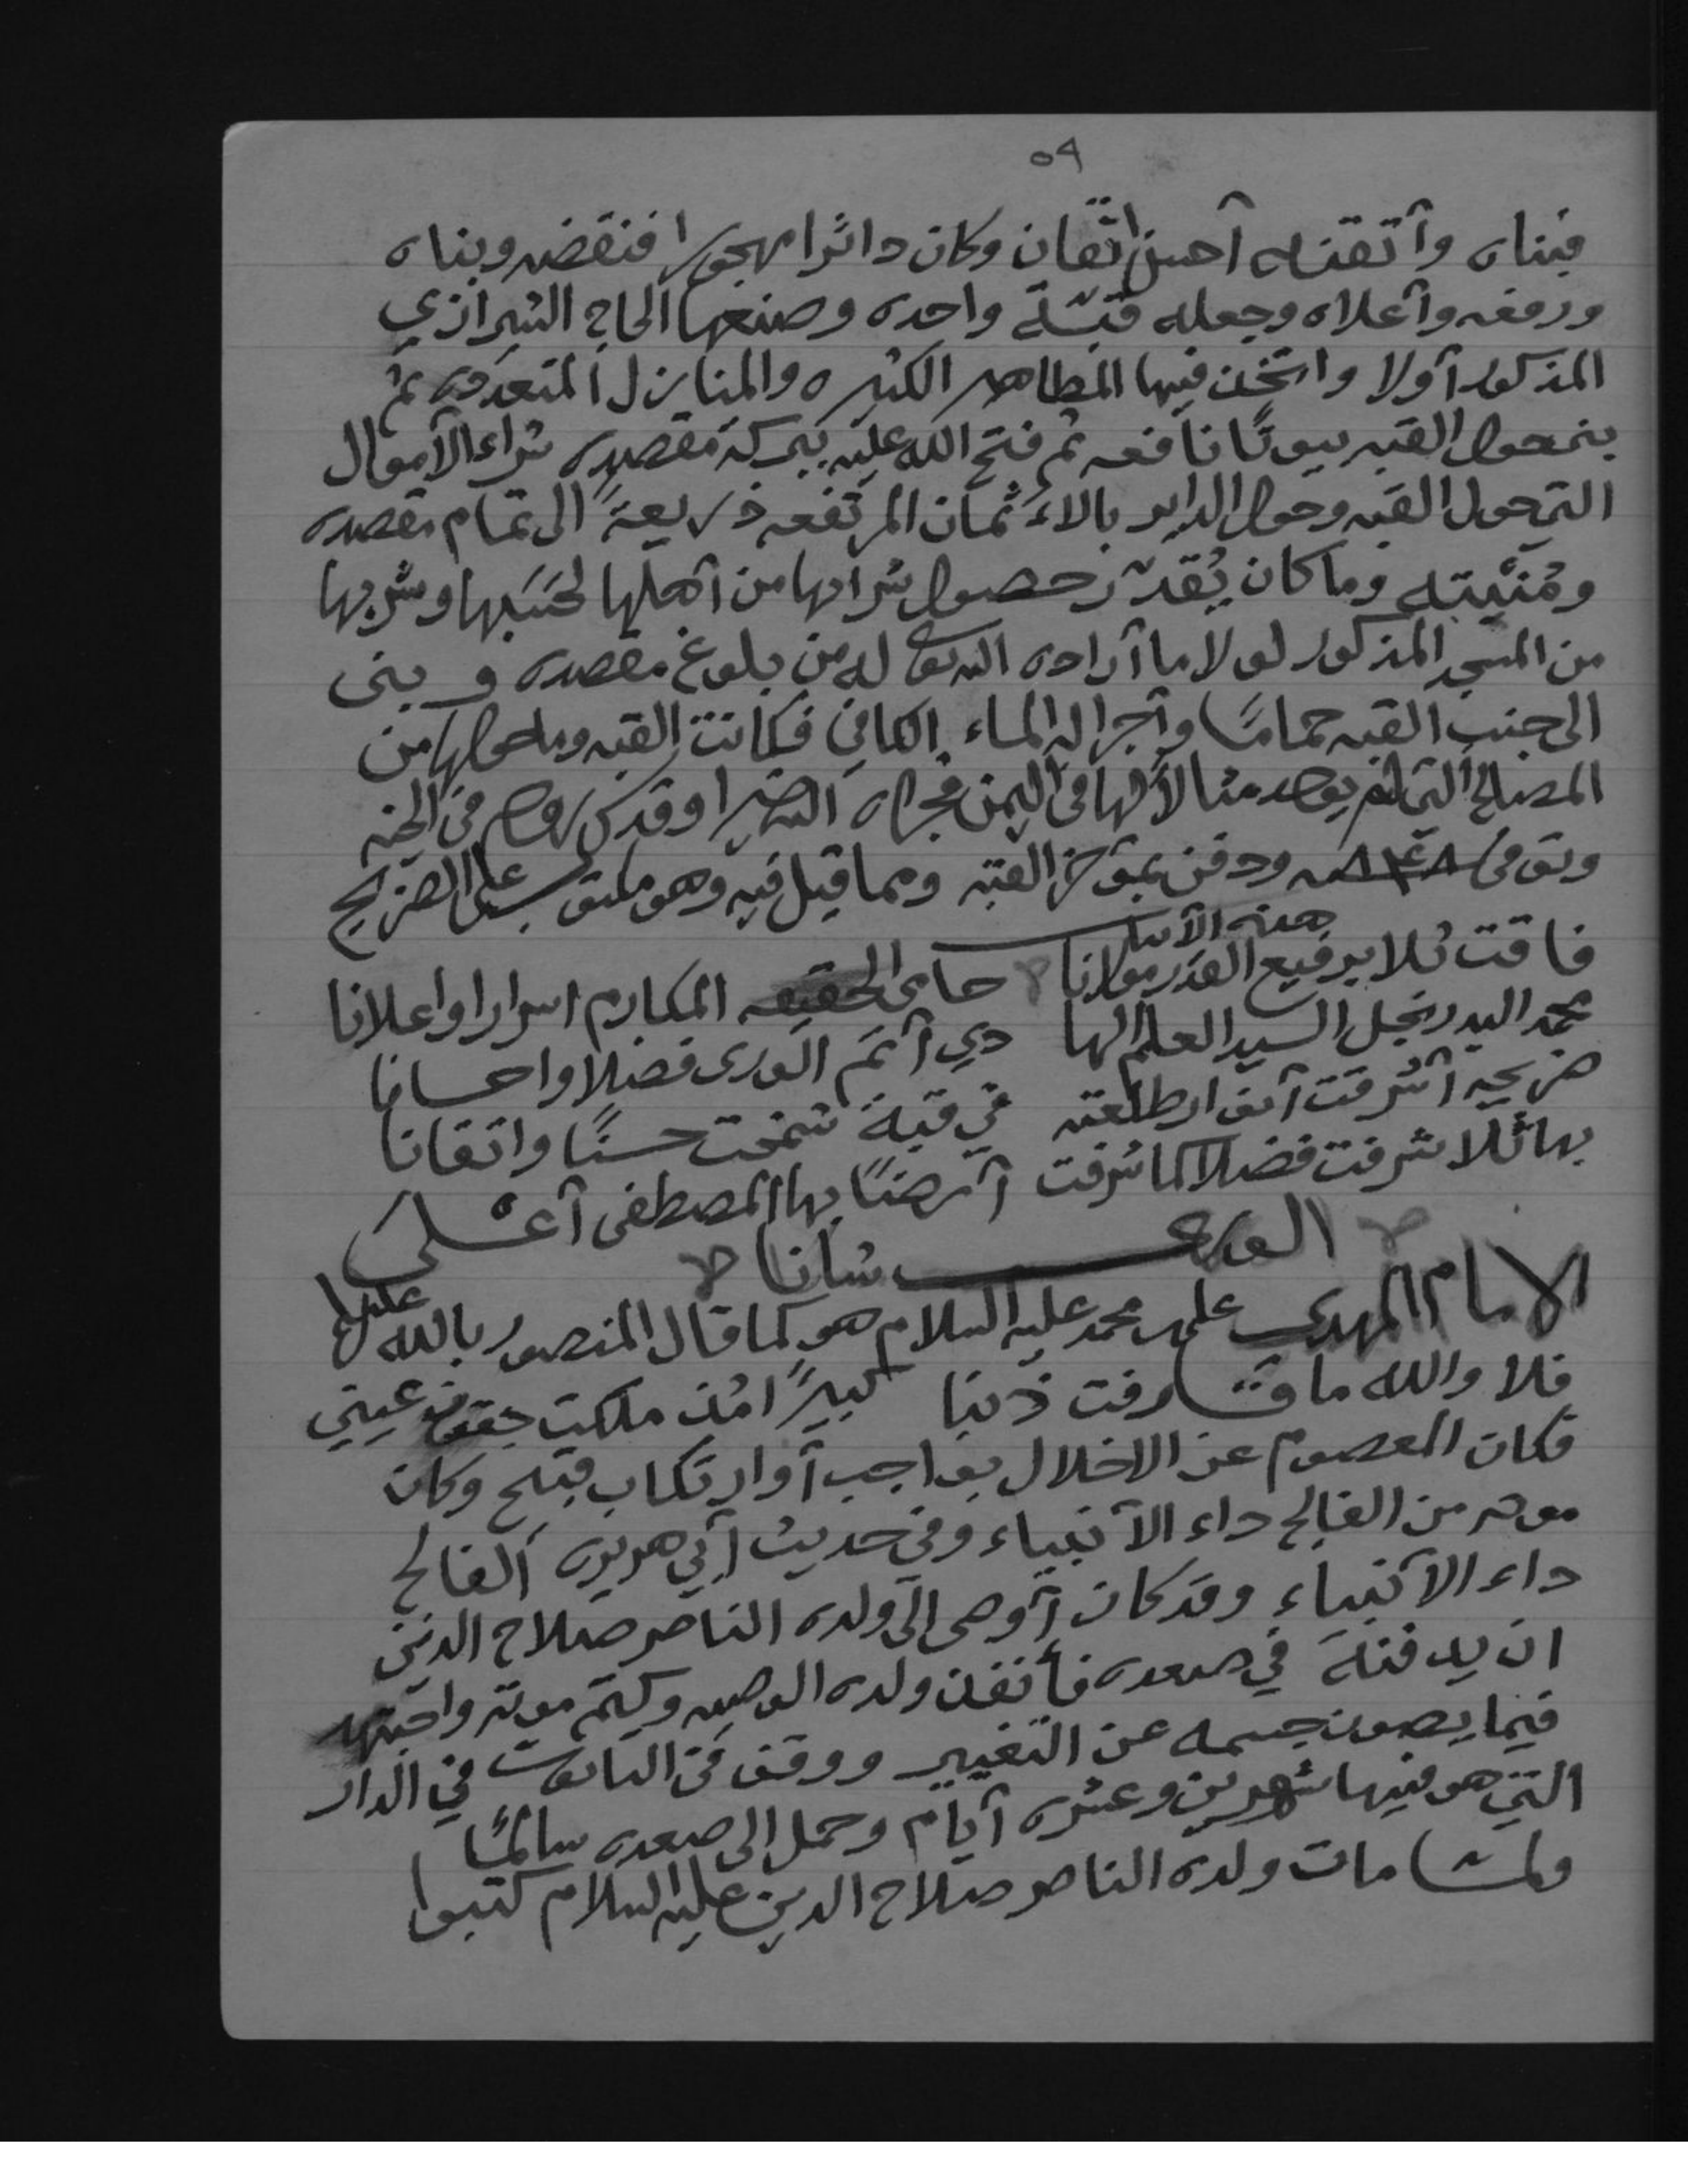 ٥٩
فبناه وأتقنه أحسن اتقان وكان داثرا مهجورا فنقضه وبناه
ورفعه وأعلاه وجعله قبّة واحده وصنعها الحاج الشيرازي
المذكور أولا واتخذ فيها المطاهر الكثيره والمنازل المتعدده ثم
بنى حول القبه بيوتًا نافعه ثم فتح الله عليه ببركة مقصده شراء الأموال
التي حول القبه وحول الداير بالأثمان المرتفعه ذريعةً الى تمام مقصده
ومُنْيته وما كان يُقدّر حصول شرائها من أهلها لحسبها وشربها
من المسجد المذكور لولا ما أراده الله تعالى له من بلوغ مقصده وبنى
الى جنب القبه حمامًا وأجرا له الماء الكافي فكانت القبه وما حولها من
المصالح التي لم يوجد مثالًا لها في اليمن فجزاه الله خيرا وقدس روحه في الجنه
وتوفي ٨٤٨ سنه ودفن بمؤخر القبه ومما قيل فيه وهو مكتوب على الضريح
هذه الأبيات
فاقت ثلا برفيع القدر مولانا حامي الحقيقه المكارم اسرارا واعلانا
محمد البدر نجل السيد العلم الها دي أتم الورى فضلا واحسانا
ضريحه أشرقت أنوار طلعته في قبةً شمخت حسنًا واتقانا
بها ثلا شرفت فضلا كما شرفت أرضًا بها المصطفى أعلى
الورى شانا
الامام المهدي علي بن محمد عليه السلام هو كما قال المنصور بالله عليه السلام
فلا والله ما قارفت ذنبا كبيرًا مُذ ملكت حقوق عيني
فكان المعصوم عن الاخلال بواجب أو ارتكاب قبيح وكان
موته من الفالج داء الأنبياء وفي حديث أبي هريره الفالج
داء الأنبياء وقد كان أوصى الى ولده الناصر صلاح الدين
ان يدفنه في صعده فأنفذ ولده الوصيه وكتم موته واجتهد
فيما يصون جسمه عن التغيير ووقف في التابوت في الدار
التي هو فيها شهرين وعشره أيام وحمل الى صعده سالمًا
ولما مات ولده الناصر صلاح الدين عليه السلام كتبوا